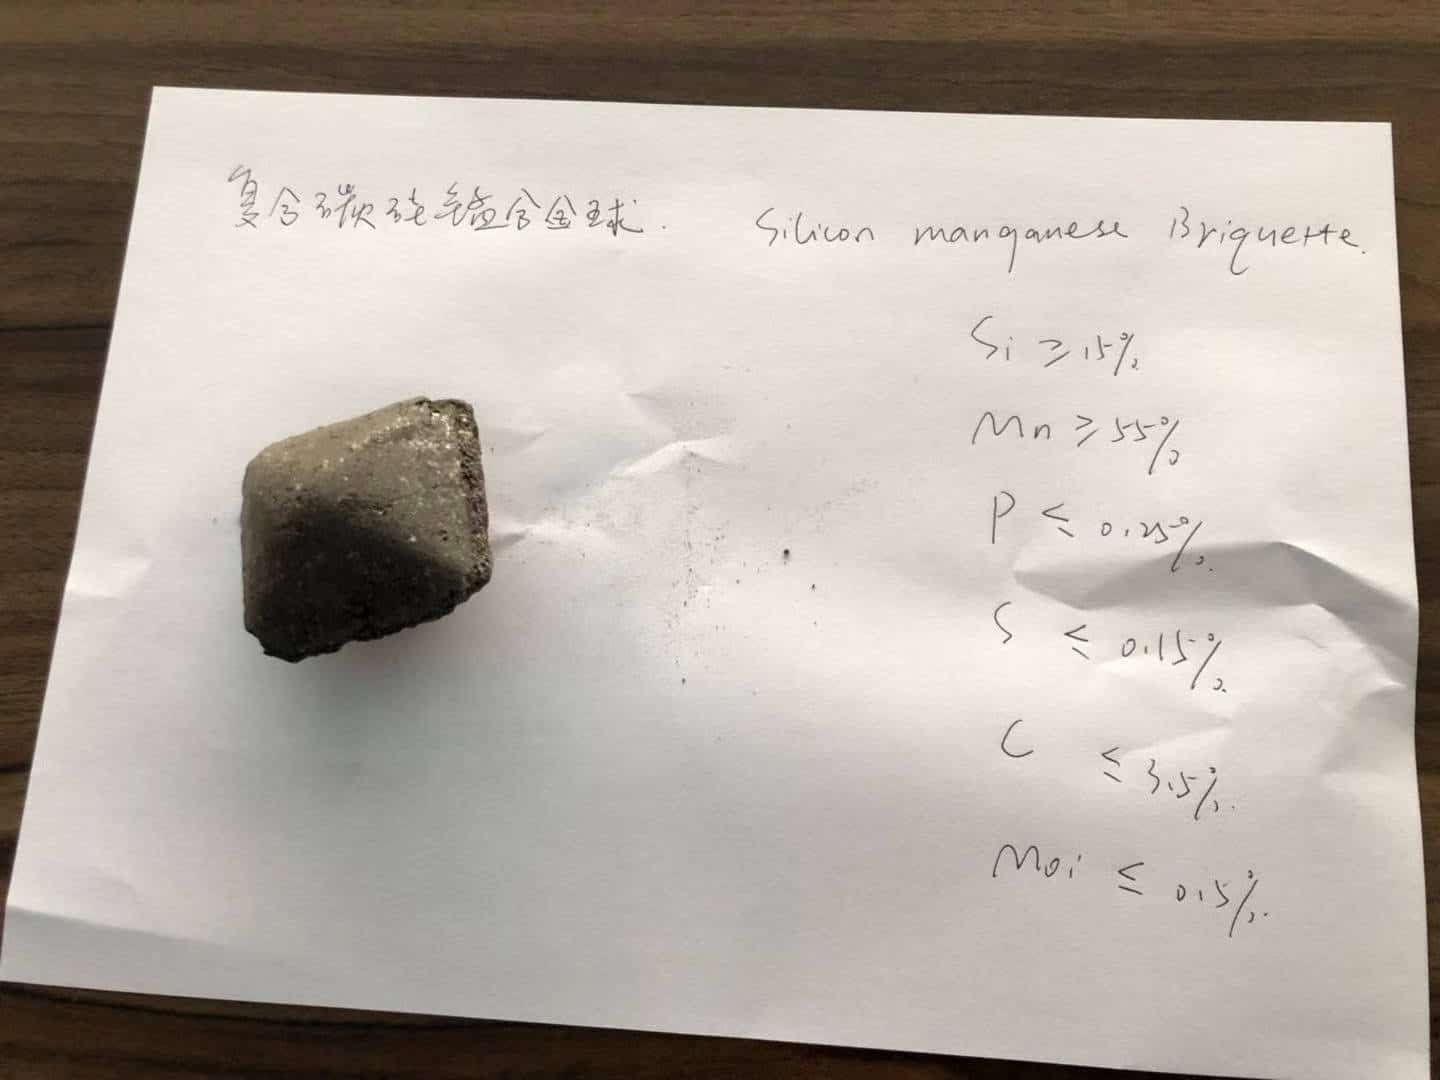 复合碳硅锰合金球.
Silicon manganese Briquette.
Si ≥ 15%
Mn ≥ 55%
P ≤ 0.25%.
S ≤ 0.15%.
C ≤ 3.5%.
Moi ≤ 0.5%.